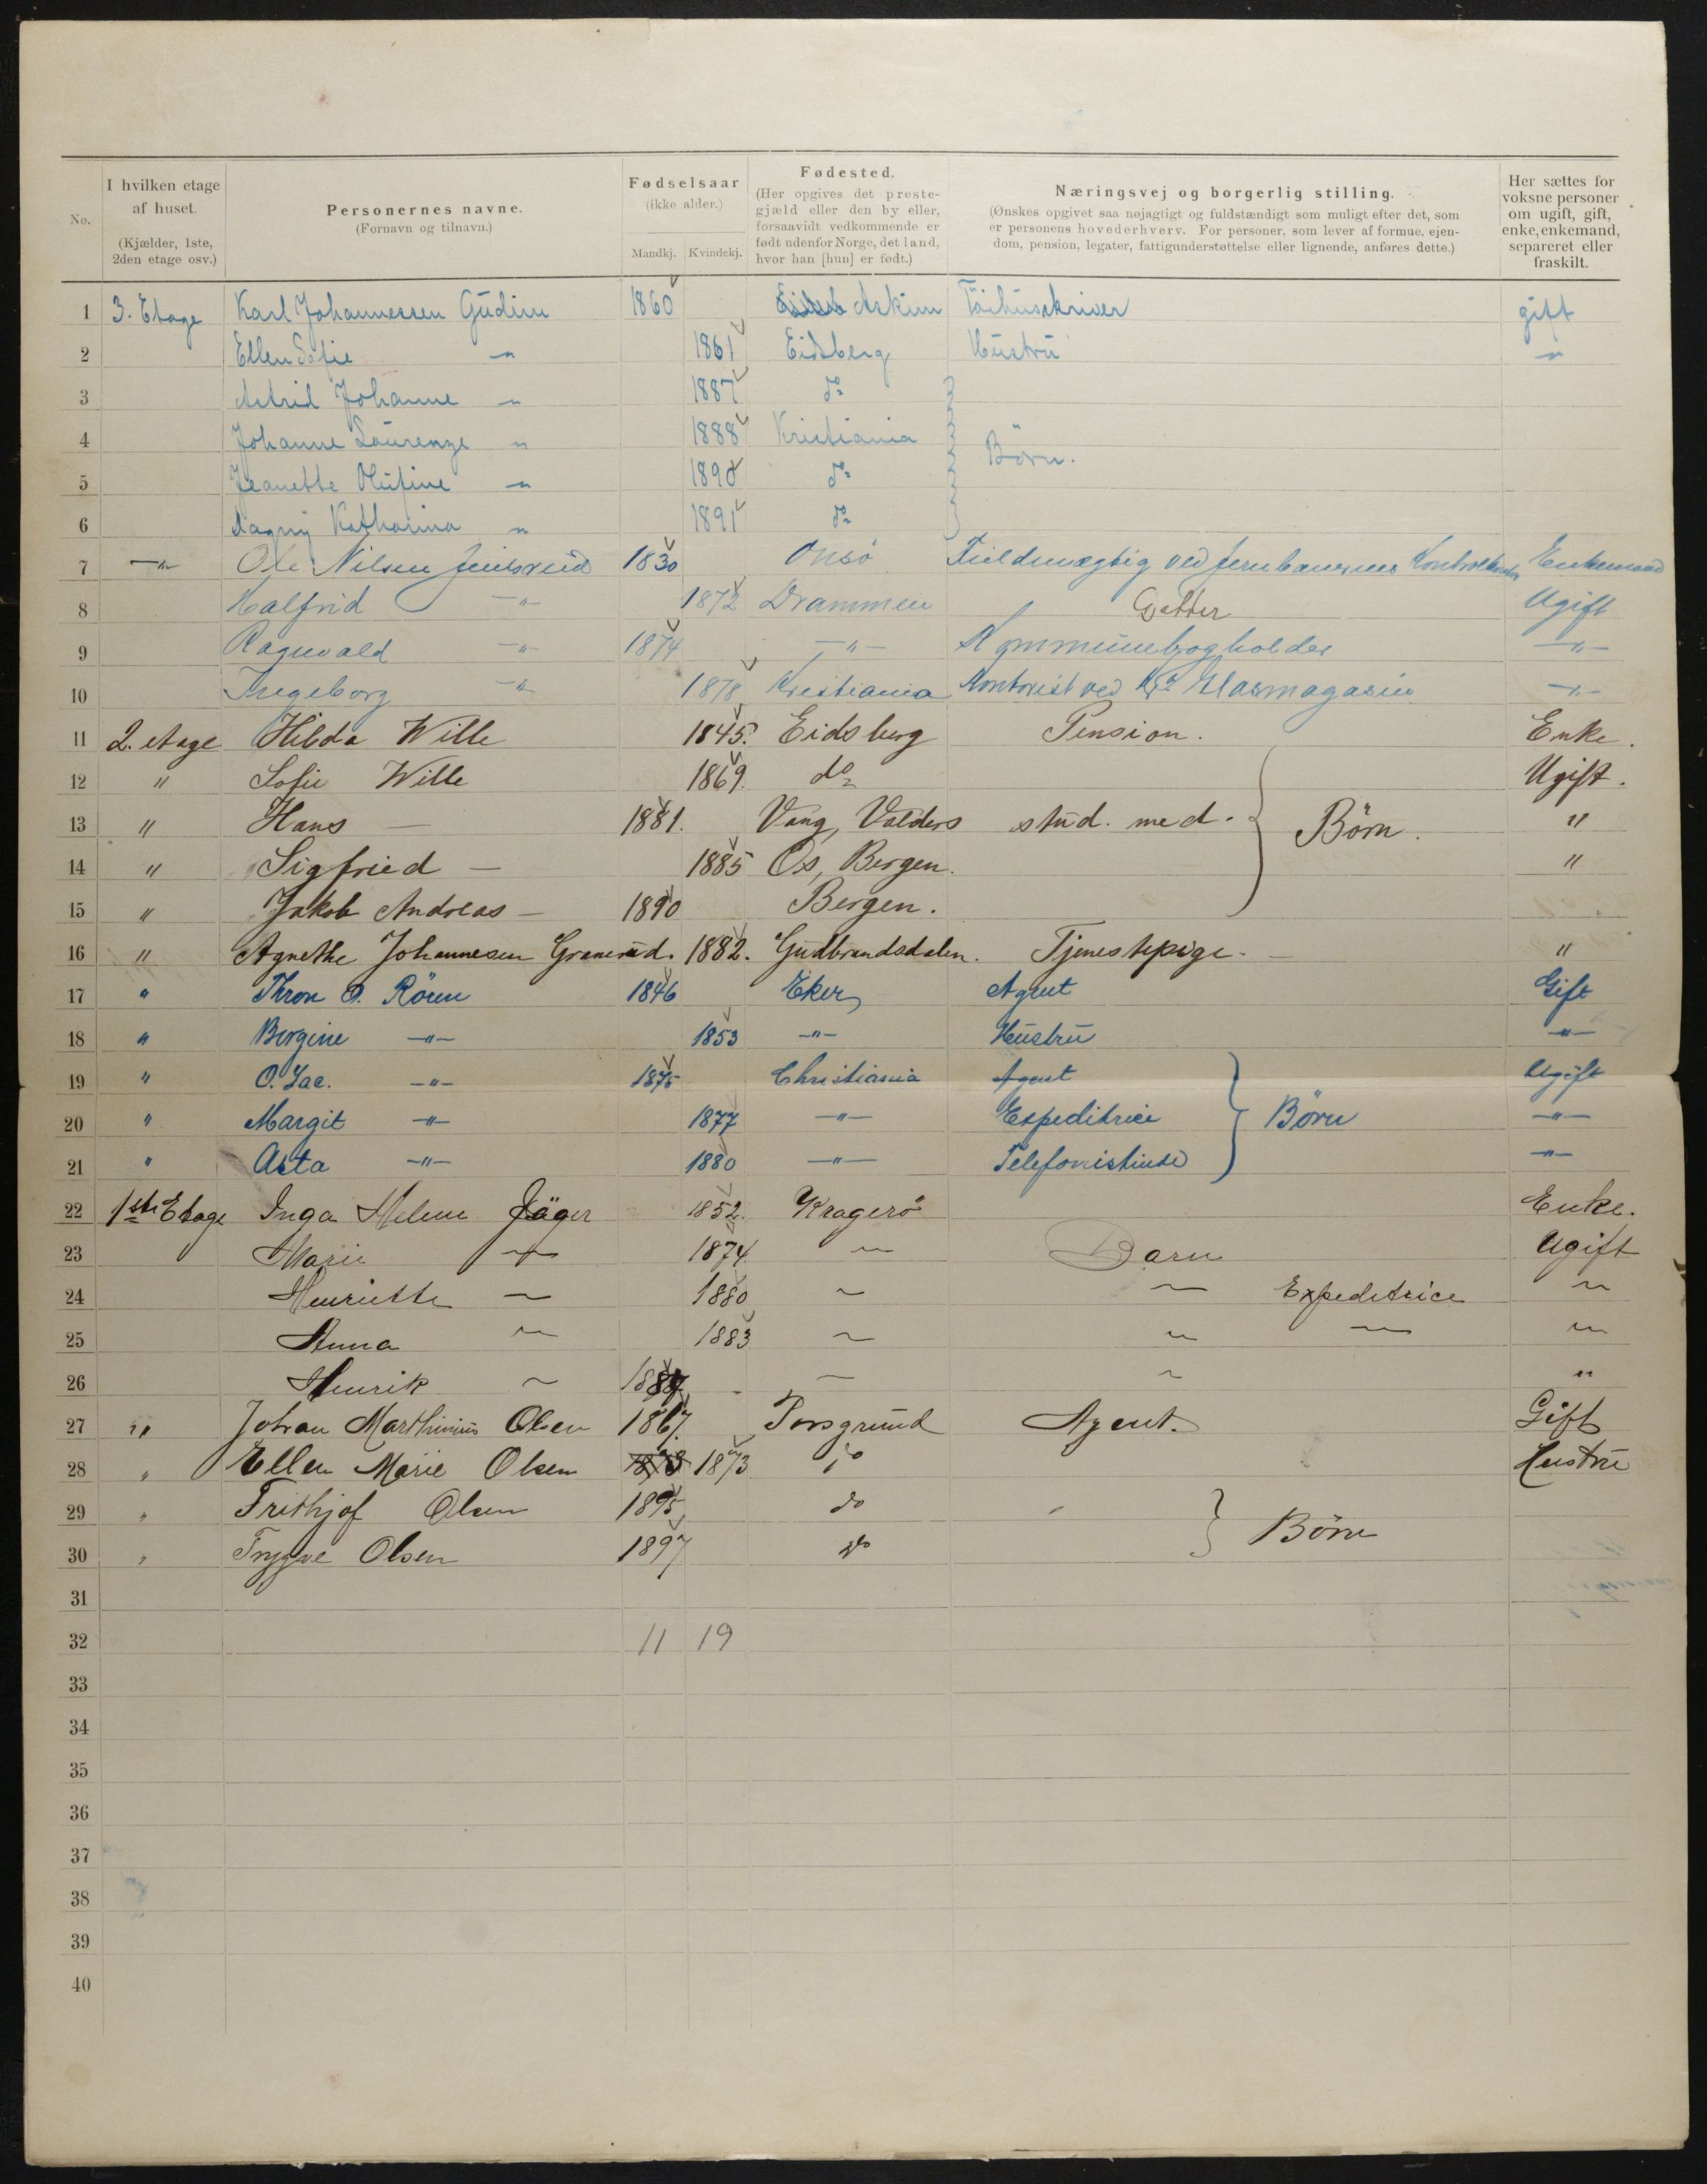 No. | I hvilken etage af huset. (Kjælder, 1ste, 2den etage osv.) | Personernes navne. (Fornavn og tilnavn.) | Fødselsaar (ikke alder.) Mandkj. Kvindekj. | Fødested. (Her opgives det prestegjæld eller den by eller, forsaavidt vedkommende er født udenfor Norge, det land, hvor han [hun] er født.) | Næringsvej og borgerlig stilling. (Ønskes opgivet saa nøjagtigt og fuldstændigt som muligt efter det, som er personens hovederhverv. For personer, som lever af formue, ejendom, pension, legater, fattigunderstøttelse eller lignende, anføres dette.) | Her sættes for voksne personer om ugift, gift, enke, enkemand, separeret eller fraskilt.
1 3. Etage Karl Johannessen Gudim 1860 Askim Töihusskriver gift
2 Ellen Sofie —"— 1861 Eidsberg Hustru —"—
3 Astrid Johanne —"— 1887 do
4 Johanne Laurenze —"— 1888 Kristiania Börn.
5 Jeanette Olufine —"— 1890 do
6 Dagny Katharina —"— 1891 do
7 —"— Ole Nilsen 1830 Onsö Fuldmægtig ved Jernbanernes Kontrolkontor Enkemand
8 Halfrid —"— 1872 Drammen Ugift
9 Ragnvald —"— 1874 —"— Kommunebogholder —"—
10 Ingeborg —"— 1878 Kristiania Kontorist ved Kra Glasmagasin —"—
11 2. etage Hilda Wille 1845. Eidsberg Pension. Enke.
12 " Sofie Wille 1869. do Ugift.
13 " Hans — 1881. Vang, Valders stud. med. Börn. "
14 " Sigfried — 1885 Os, Bergen. "
15 " Jakob Andreas — 1890 Bergen.
16 " Agnethe Johannesen Granerud. 1882. Gudbrandsdalen. Tjenestepige. — "
17 " Thron O. Rören 1846 Eker Agent Gift
18 " Bergine —"— 1853 —"— Hustru —"—
19 " O. Lae. —"— 1875 Christiania Agent Ugift
20 " Margit —"— 1877 —"— Expeditrice Börn —"—
21 " Asta —"— 1880 —"— Telefonistinde —"—
22 1ste Etage Inga Helene Jäger 1852. Kragerö Enke.
23 Marie —"— 1874. —"— Barn Ugift
24 Henriette —"— 1880 —"— —"— Expeditrice —"—
25 Anna —"— 1883 —"— —"— —"— —"—
26 Henrik —"— —"— —"— "
27 " Johan Marthinius Olsen 1867. Porsgrund Agent. Gift
28 " Ellen Marie Olsen 1873 do Hustru
29 " Frithjof Olsen 1895 do
30 " Trygve Olsen 1897 do Börn
31
32 11 19
33
34
35
36
37
38
39
40